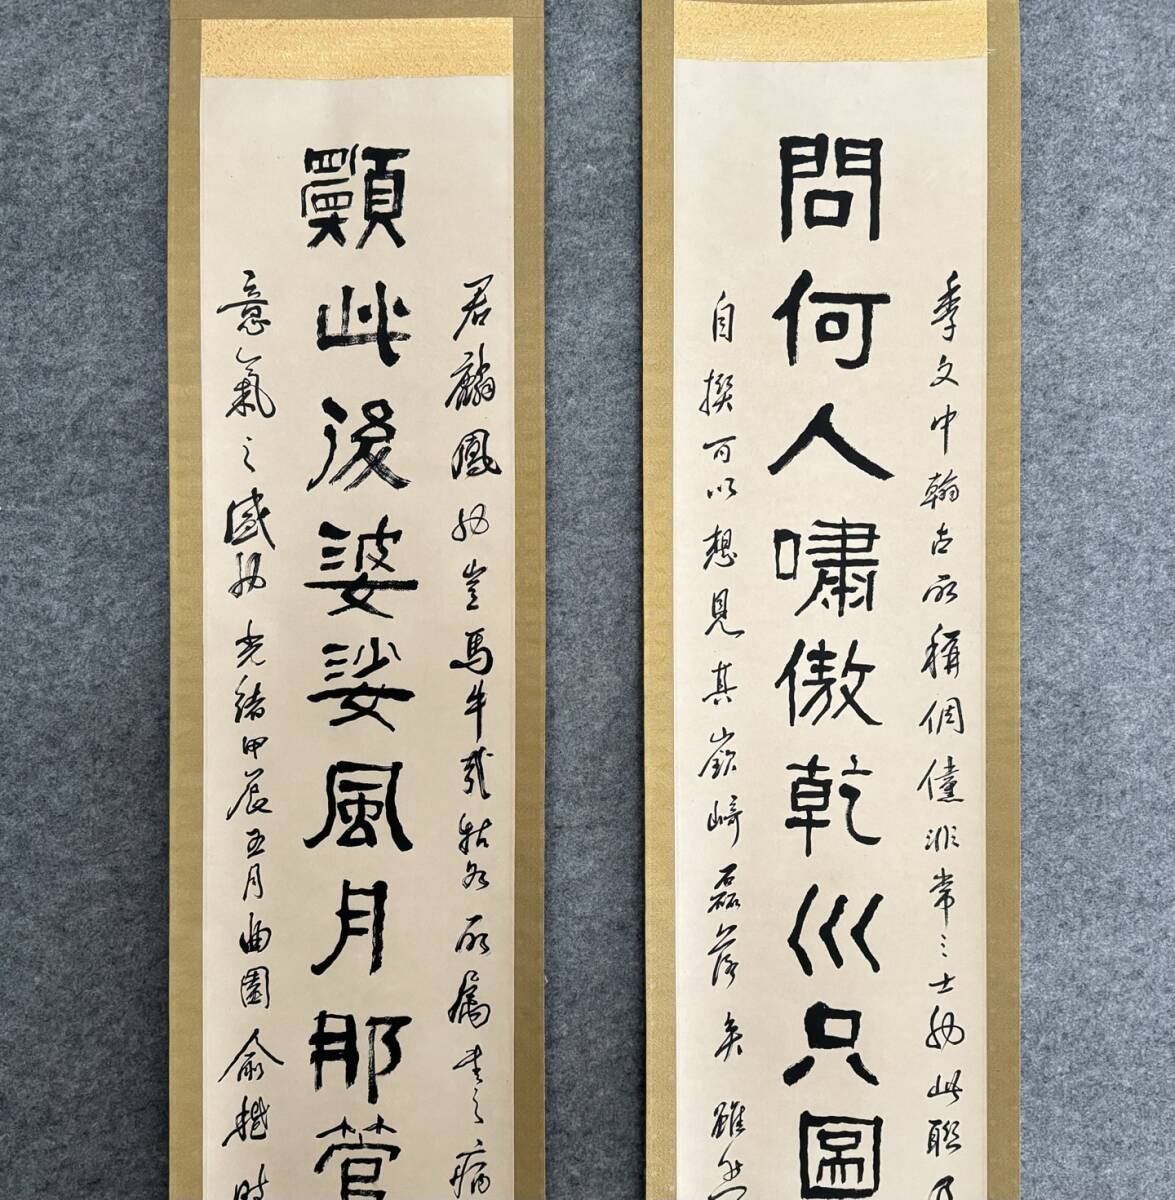 季文中翰古所稱倜儻非常之士也此聯乃
問何人嘯傲乾巛只圖
自撰可以想見其嶔崎磊落矣雖然
君麟鳳也豈馬牛哉姑如所屬書之
此後婆娑風月那管
意氣之盛也光緒甲辰五月曲園俞樾時